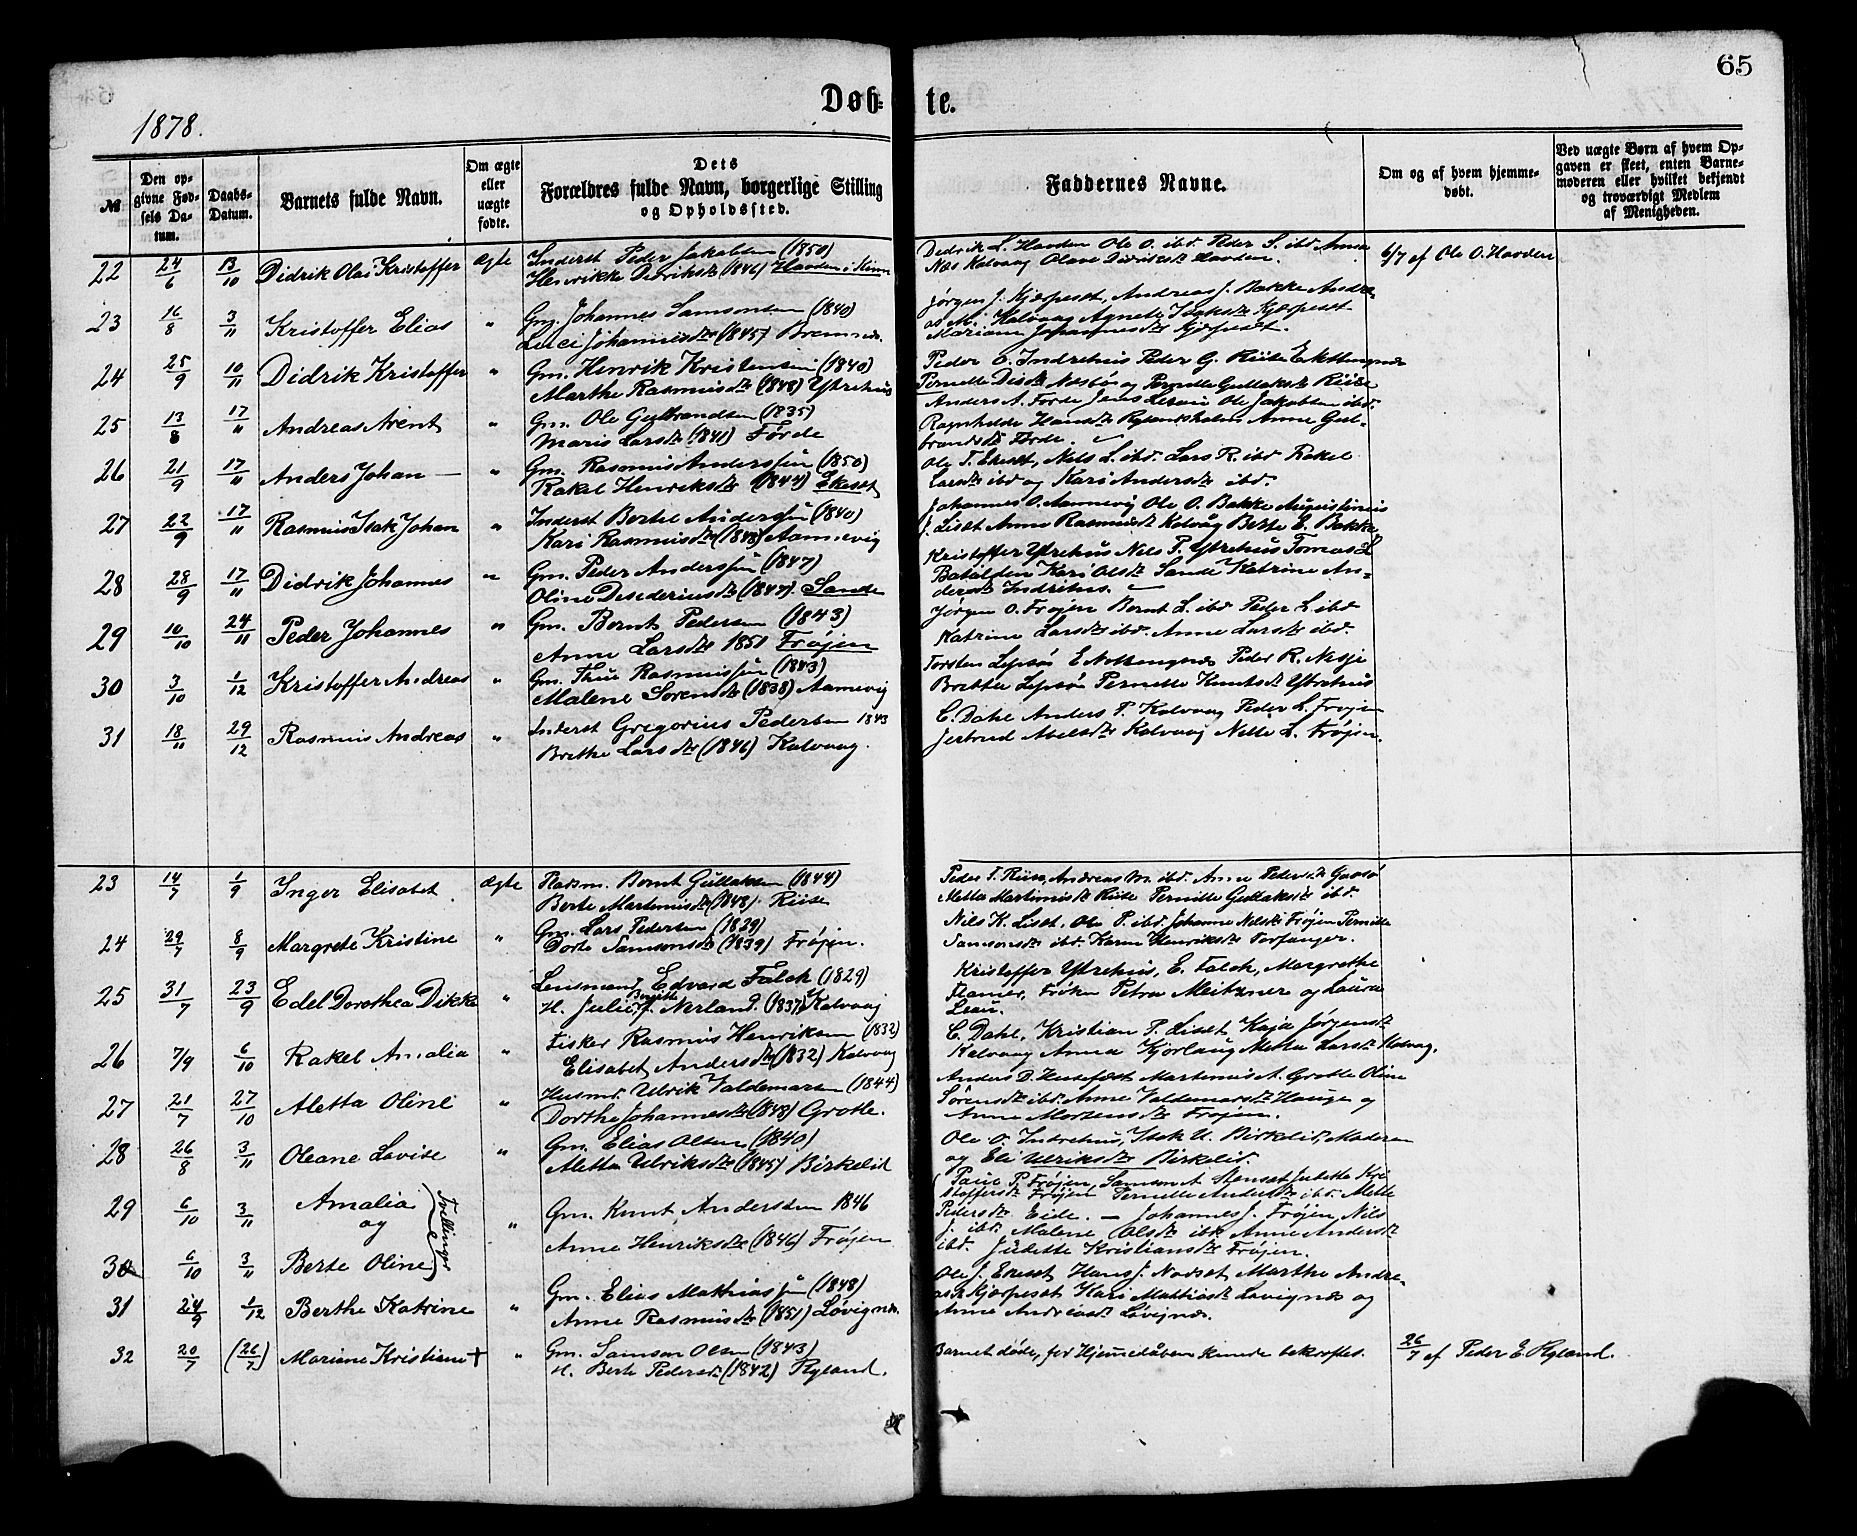 65
Døb-te.
1878.
№
Den opgivne Fødsels Datum.
Daabs-Datum.
Barnets fulde Navn.
Om ægte eller uægte fødte.
Dets Forældres fulde Navn, borgerlige Stilling og Opholdssted.
Faddernes Navne.
Om og af hvem hjemmedøbt.
Ved uægte Børn af hvem Opgaven er skeet, enten Barnemoderen eller hvilket bekjendt og troværdigt Medlem af Menigheden.
22 24/6 13/10 Didrik Olai Kristoffer ægte Inderst Peder Jakobsen (1850)
Henrikke Didriksdtr (1846) Havden i Kinn
Didrik L. Havden Ole O. ibd. Peder S. ibd. Anna
Næs Kalvaag Olave Didriksdtr Havden.
6/7 af Ole O. Havden
23 16/8 3/11 Kristoffer Elias " Gm. Johannes Samsonsen (1840)
Luci Johannisdtr (1845) Bremnes.
Jørgen J. Kjerpeset, Andreas J. Bakke Andre-
as M. Kalvaag Agnete Isaksdtr Kjerpeset
Mariane Johannesdtr Kjerpeset.
24 25/9 10/11 Didrik Kristoffer " Gm. Henrik Kristensen (1840)
Marthe Rasmusdtr (1848) Ytrehus
Peder O. Indrehus Peder G. Riise
Pernille Gullaksdtr Riise
25 13/8 17/11 Andreas Arent " Gm. Ole Gulbrandsen (1835)
Maris Larsdtr (1841) Førde
Anders A. Førde Jens Ole Jakobsen ibd.
Ragnhilde Hansdtr Anne Gul-
brandsdtr Førde.
26 21/9 17/11 Anders Johan " Gm. Rasmus Anderssøn (1850)
Rakel Henriksdtr (1844) Ekeset
Ole T. Ekeset, Nils L. ibd. Lars R. ibd Rakel
Larsdtr ibd og Kari Andersdtr ibd.
27 22/9 17/11 Rasmus Isak Johan " Inderst Bertel Anderssøn (1840)
Kari Rasmusdtr (1848) Aamevig
Johannes O. Aamevig Ole O. Bakke Augustinus
J. Liset Anne Rasmusdtr Kalvåg Berte E. Bakke
28 28/9 17/11 Didrik Johannes " Gm. Peder Anderssøn (1847)
Oline Desideriusdtr (1847) Sande
Kristoffer Ytrehus Nils P. Ytrehus Tomas L
Batalden Kari Olsdtr Sande Katrine An-
dersdtr Indrehus.
29 10/10 24/11 Peder Johannes " Gm. Bernt Pedersen (1843)
Anne Larsdtr 1851 Frøjen
Jørgen O. Frøjen Bernt L. ibd Peder L. ibd
Katrine Larsdtr ibd. Anne Larsdtr ibd.
30 3/10 1/12 Kristoffer Andreas " Gm. Thue Rasmussøn (1843)
Malene Sørensdtr (1838) Aamevig
Torsten Lepsø E. Nottengnes Peder R. Nesje
Brethe Lepsø Pernille Knutsdt Ytrehus
31 18/11 29/12 Rasmus Andreas " Inderst Gregorius Pedersen 1843
Brethe Larsdtr (1846) Kalvaag.
C. Dahl Anders P. Kalvaag Peder L. Frøjen
Jertrud Kalvaag Nille L. Frøjen.
23 14/7 1/9 Inger Elisabet ægte Pladsm. Bernt Gullaksen (1844)
Berte Martinusdtr (1848) Riise
Peder T. Riise, Andreas M. ibd. Anne Pedersdtr
Metta Martinusdtr Riise Pernille Gullaksdtr ibd.
24 29/7 8/9 Margrete Kristine " Gm. Lars Pedersen (1829)
Dorte Samsonsdtr (1839) Frøjen.
Nils K. Liset, Ole P. ibd. Johanne Nilsdtr Frøjen Pernille
Samsonsdtr ibd. Karen Henriksdtr Torfanger.
25 31/7 23/9 Edel Dorothea Dikka " Lensmand Edvard Falch (1829)
H. Julie Bergitte f. Nerland (1837) Kalvaag
Kristoffer Ytrehus, E. Falch, Margrethe
Frøken Petra Meitzner og Laura
26 7/9 6/10 Rakel Amalia " Fisker Rasmus Henriksen (1832)
Elisabet Andersdtr (1832) Kalvaag
C. Dahl, Kristian P. Liset Kaja Jørgensdtr
Kalvaag Anna Kjørlaug Metta Larsdtr Kalvaag.
27 21/7 27/10 Aletta Oline " Husmd. Ulrik Valdemarsen (1844)
Dorthe Johannesdtr (1848) Grotle.
Anders D. Husefæst Martinus A. Grotle Oline
Sørensdtr ibd. Anne Valdemarsdtr Hauge og
Anne Mortensdtr Frøjen.
28 26/8 3/11 Oleane Lovise " Gm. Elias Olsen (1840)
Aletta Ulriksdtr (1845) Birkelid
Ole O. Indrehus, Isak U. Birkelid, Moderen
og Eli Ulriksdtr Birkelid.
29 6/10 3/11 Amalia
og
Tvellinger
" Gm. Knut Anderssen 1846
Anne Henriksdtr (1846) Frøjen
Paul P. Frøjen, Samson A. Stenset Judithe Kri-
stoffersdtr Frøjen Pernille Andersdtr ibd. Mette
Pedersdtr Eide. — Johannes J. Frøjen Nils
J. ibd. Malene Olsdtr ibd. Anne Andersdtr
ibd. Judithe Kristiansdtr Frøjen.
30 6/10 3/11 Berte Oline
31 24/9 1/12 Berthe Katrine " Gm. Elias Mathiassøn (1848)
Anne Rasmusdtr (1851) Løvignes.
Ole J. Ekeset Hans J. Nodset Marthe Andre-
asdtr Kjerpeset Kari Mathiasdtr Løvignes og
Anne Andreasdtr Løvignes.
32 20/7 (26/7) Mariane Kristiane † " Gm. Samson Olsen (1843)
H. Berte Pedersdtr (1842) Ryland.
Barnet døde, før Hjemmedåben kunde bekræftes.
26/7 af Peder E. Ryland.